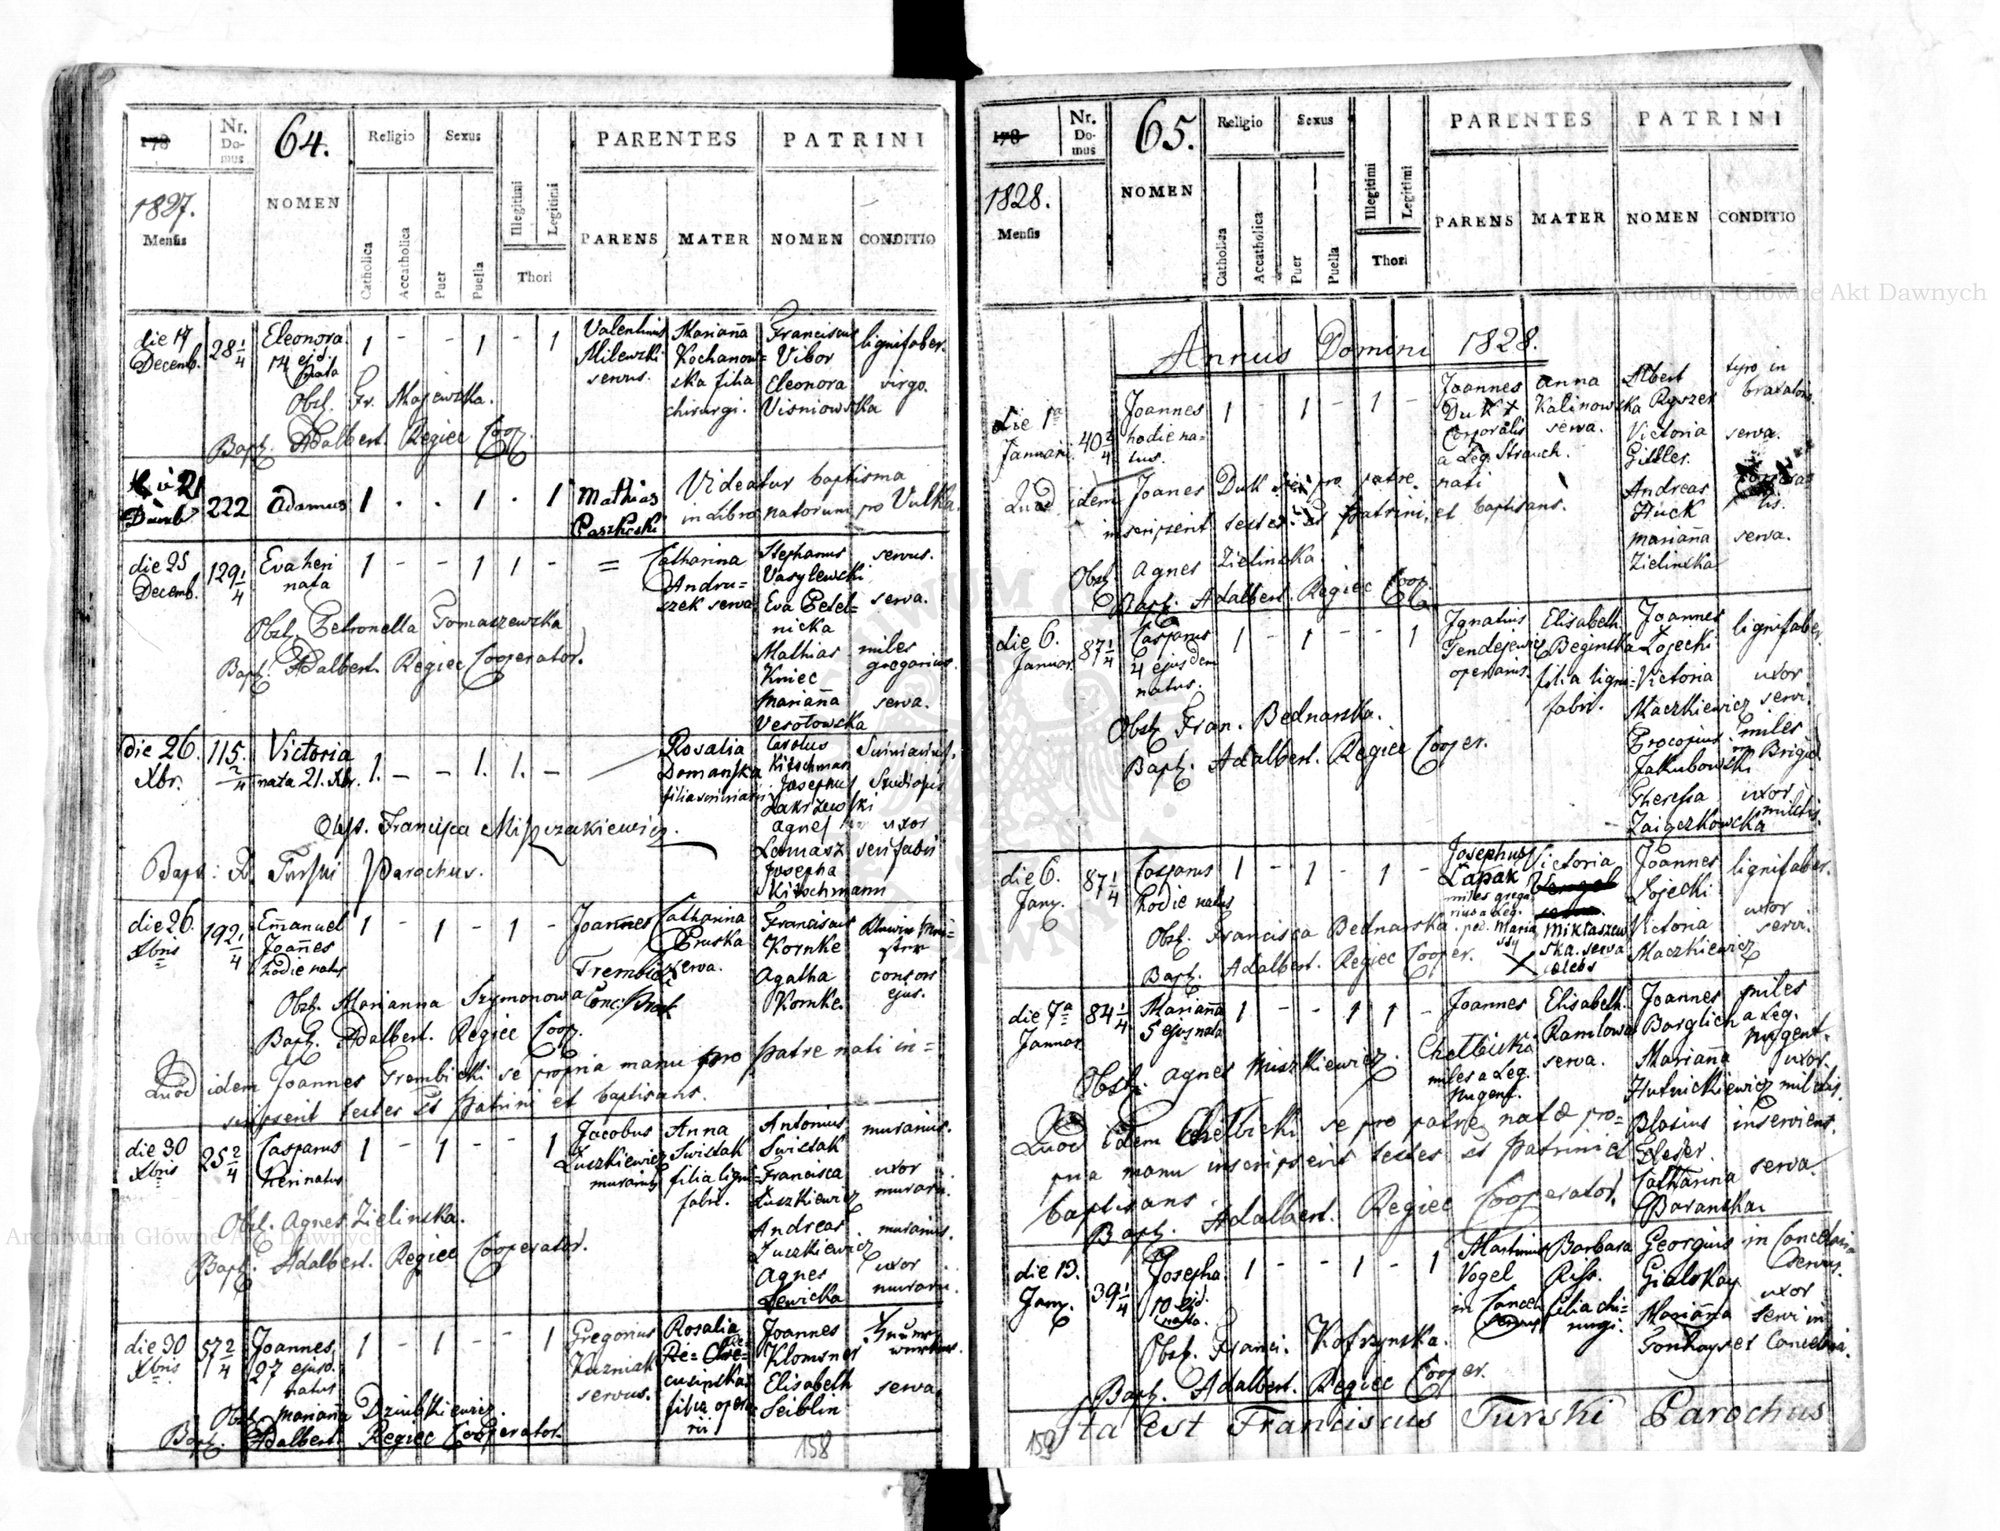 178
Nr. Domus
64.
Religio
Sexus
PARENTES
PATRINI
1827.
Mensis
NOMEN
Catholica
Accatholica
Puer
Puella
Illegitimi
Legitimi
Thori
PARENS
MATER
NOMEN
CONDITIO
die 17 Decemb.
28 1/4
Eleonora
14 ejd. nata
1 - - 1 - 1
Valentinus
Milewski
servus.
Marianna
Kochanow=
ska filia
chirurgi.
Franciscus
Vibor
Eleonora
Visniowska
lignifaber.
virgo.
Obst. Fr. Majewska.
Bapt. Adalbert. Regiec Coop.
21
222
Adamus
1 . . 1 . 1
Mathias
Paszkoski
Videatur baptisma
in Libro natorum pro Vulka.
die 25
Decemb.
129 1/4
Eva heri
nata
1 - - 1 1 -
=
Catharina
Andru=
szek serva
Stephanus
Vasylewski
Eva Petel=
nicka
Mathias
Kniec
Marianna
Vesolowska
servus.
serva.
miles
gregarius.
serva.
Obst. Petronella Tomaszewska
Bapt. Adalbert. Regiec Cooperator.
die 26.
Xbr.
115. 2/4
Victoria
nata 21. Xbr.
1. - - 1. 1. -
Rosalia
Domanska
Carolus
Kitschman
Josephus
Zakrzewski
Agnes
Lamasz
Josepha
Kitschmann
Studiosus
uxor
Obst. Francisca
Bapt: Turski Parochus.
die 26.
Xbris
192 1/4
Emanuel
Joannes
hodie natus
1 - 1 - 1 -
Joannes
Trembicki
Catharina
Pruska
serva.
Franciscus
Kornke
Agatha
Kornke.
consors
ejus.
Obst. Marianna Szymonowa
Bapt. Adalbert. Regiec Coop.
Quod idem Joannes Trembicki se propria manu pro patre nati in=
scripserit testes st Patrini et baptisans.
die 30
Xbris
25 2/4
Casparus
heri natus
1 - 1 - - 1
Jacobus
Luszkiewicz
murarius
Anna
Swistak
filia ligni=
fabri.
Antonius
Swistak
Francisca
Luszkiewicz
Andreas
Juszkiewicz
Agnes
Lewicka
murarius.
uxor
murarii.
murarius.
uxor
murarii.
Obst. Agnes Zielinska.
Bapt. Adalbert. Regiec Cooperator.
die 30
Xbris
57 2/4
Joannes
27 ejusd.
natus
1 - 1 - - 1
Gregorius
Kuzniak
servus.
Rosalia
filia opera
rii
Joannes
Klomsner
Elisabeth
Seiblin
serva
Obst. Marianna Dziubkiewicz.
Bapt. Adalbert. Regiec Cooperator.
158
178
Nr. Domus
65.
Religio
Sexus
PARENTES
PATRINI
1828.
Mensis
NOMEN
Catholica
Accatholica
Puer
Puella
Illegitimi
Legitimi
Thori
PARENS
MATER
NOMEN
CONDITIO
Annus Domini 1828.
die 1a
Januarii.
40 2/4
Joannes
hodie na=
tus.
1 - 1 - 1 -
Joannes
Duk x
Corporalis
a Leg. Strauch.
Anna
Kalinowska
serva.
Albert
Ryszer
Victoria
Gittler.
Andreas
Huck
Marianna
Zielinska
tyro in
serva.
serva.
Quod idem Joanes Duk se pro patre nati
inscripserit testes st Patrini, et baptisans.
Obst. Agnes Zielinska.
Bapt. Adalbert. Regiec Coop.
die 6.
Januar.
87 1/4
Casparus
4 ejusdem
natus.
1 - 1 - - 1
Ignatius
Tendejewicz
operarius.
Elisabeth
Beginska
filia ligni=
fabri.
Joannes
Lojecki
Victoria
Maczkiewicz
Procopius
Jakubowski
Theressa
Zaigczkowska
lignifaber.
uxor
servi.
miles
uxor
militis.
Obst. Fran. Bednarska.
Bapt. Adalbert. Regiec Cooper.
die 6.
Jany.
87 1/4
Casparus
hodie natus
1 - 1 - 1 -
Josephus
Lapak
miles grega
rius a Leg.
X
Victoria
Miklaszew
ska. serva
celebs
Joannes
Lojecki
Victoria
Maczkiewicz
lignifaber.
uxor
servi.
Obst. Francisca Bednarska.
Bapt. Adalbert. Regiec Cooper.
die 7a
Januar.
84 1/4
Marianna
5 ejus nata
1 - - 1 1 -
Joannes
Chelbicki
miles a Leg.
Nugent.
Elisabeth
Ramlowa
serva.
Joannes
Barglich
Marianna
Hutnickiewicz
Blasius
Eleser.
Catharina
Baranska.
miles
a Leg.
Nugent.
uxor
militis.
inserviens.
serva.
Obst. Agnes Miszkiewicz.
Quod idem Chelbicki se pro patre natae pro=
pria manu inscripserit testes st Patrini et
baptisans
Bapt. Adalbert. Regiec Cooperator.
die 13.
Jany.
39 1/4
Josepha
10 ejd.
nata.
1 - - 1 - 1
Martinus
Vogel
in Cancel
servus
Barbara
Riss.
filia chi=
rurgi.
Georgius
Gialskay
Marianna
in Cancelaria
servus.
uxor
servi in
Cancelaria.
Obst. Franci. Kofrzynska.
Bapt. Adalbert. Regiec Cooper.
Ita est Franciscus Turski Parochus
159
Archiwum Główne Akt Dawnych
Archiwum Główne Akt Dawnych